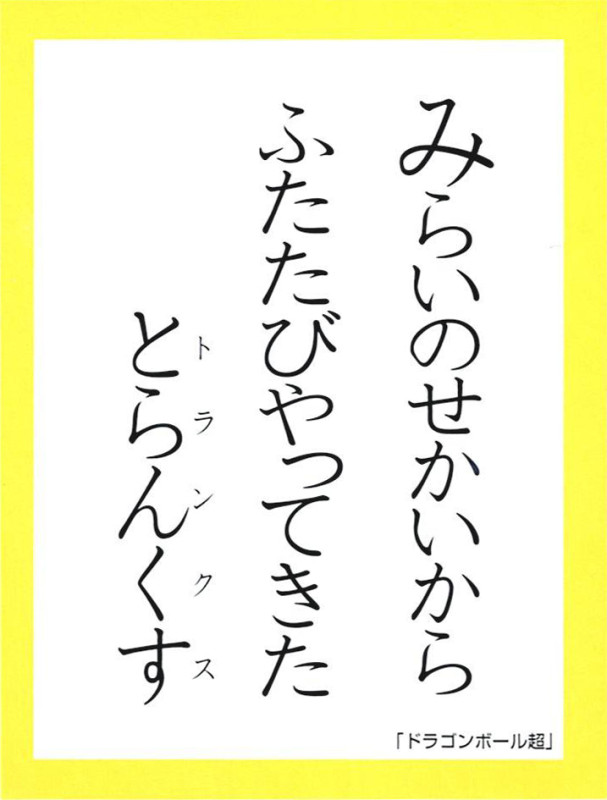 みらいのせかいから
ふたたびやってきた
とらんくす
トランクス
「ドラゴンボール超」